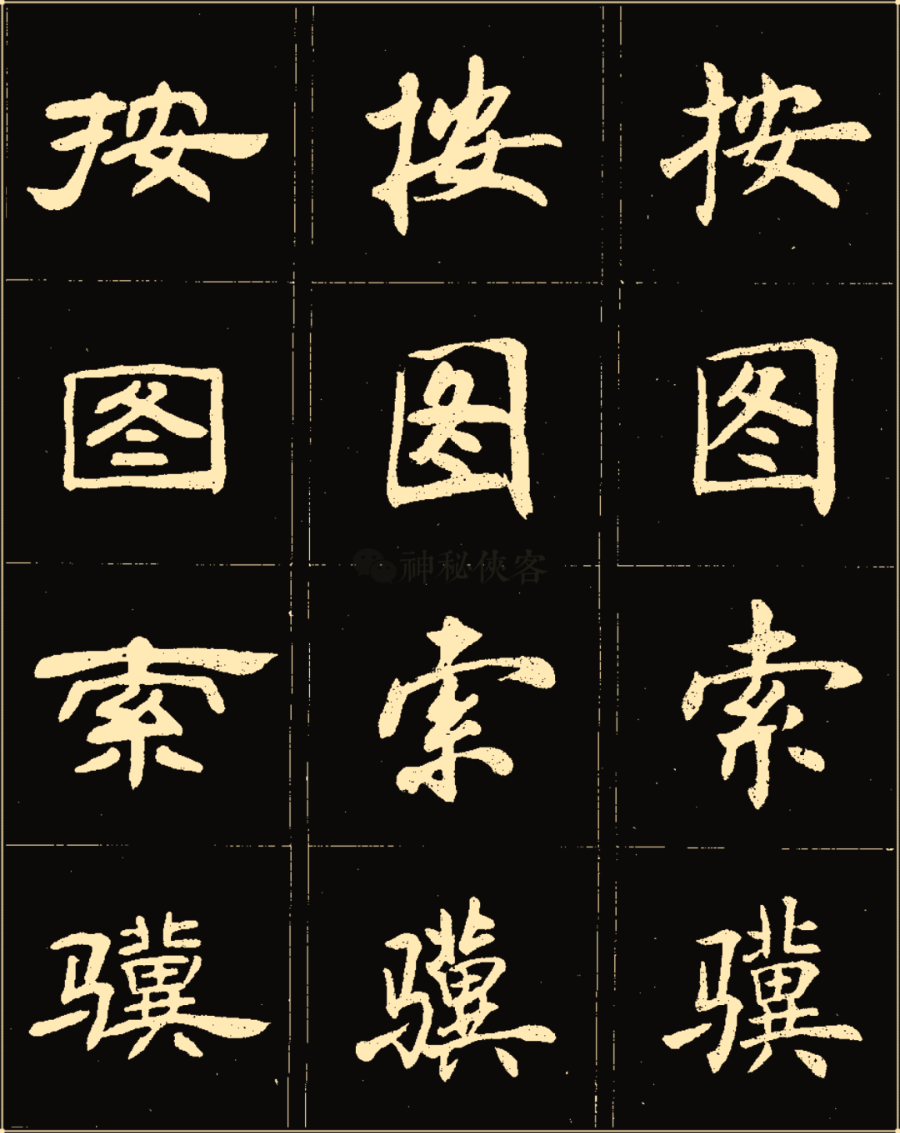 按 按 按
图 图 图
神秘侠客
索 索 索
骥 骥 骥